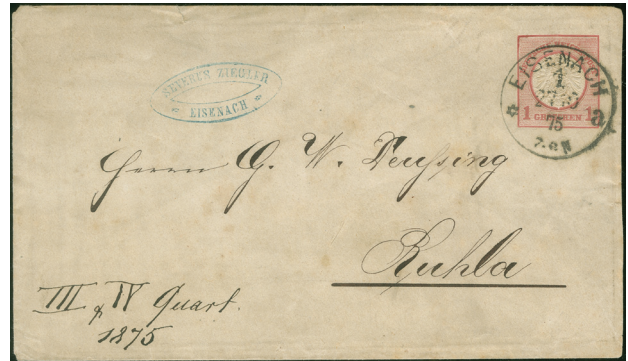 SEVERUS ZIEGLER
EISENACH
EISENACH
1 GROSCHEN 1
75
7-8 N
Herrn G. W. Deussing
Ruhla
III & IV Quart.
1875